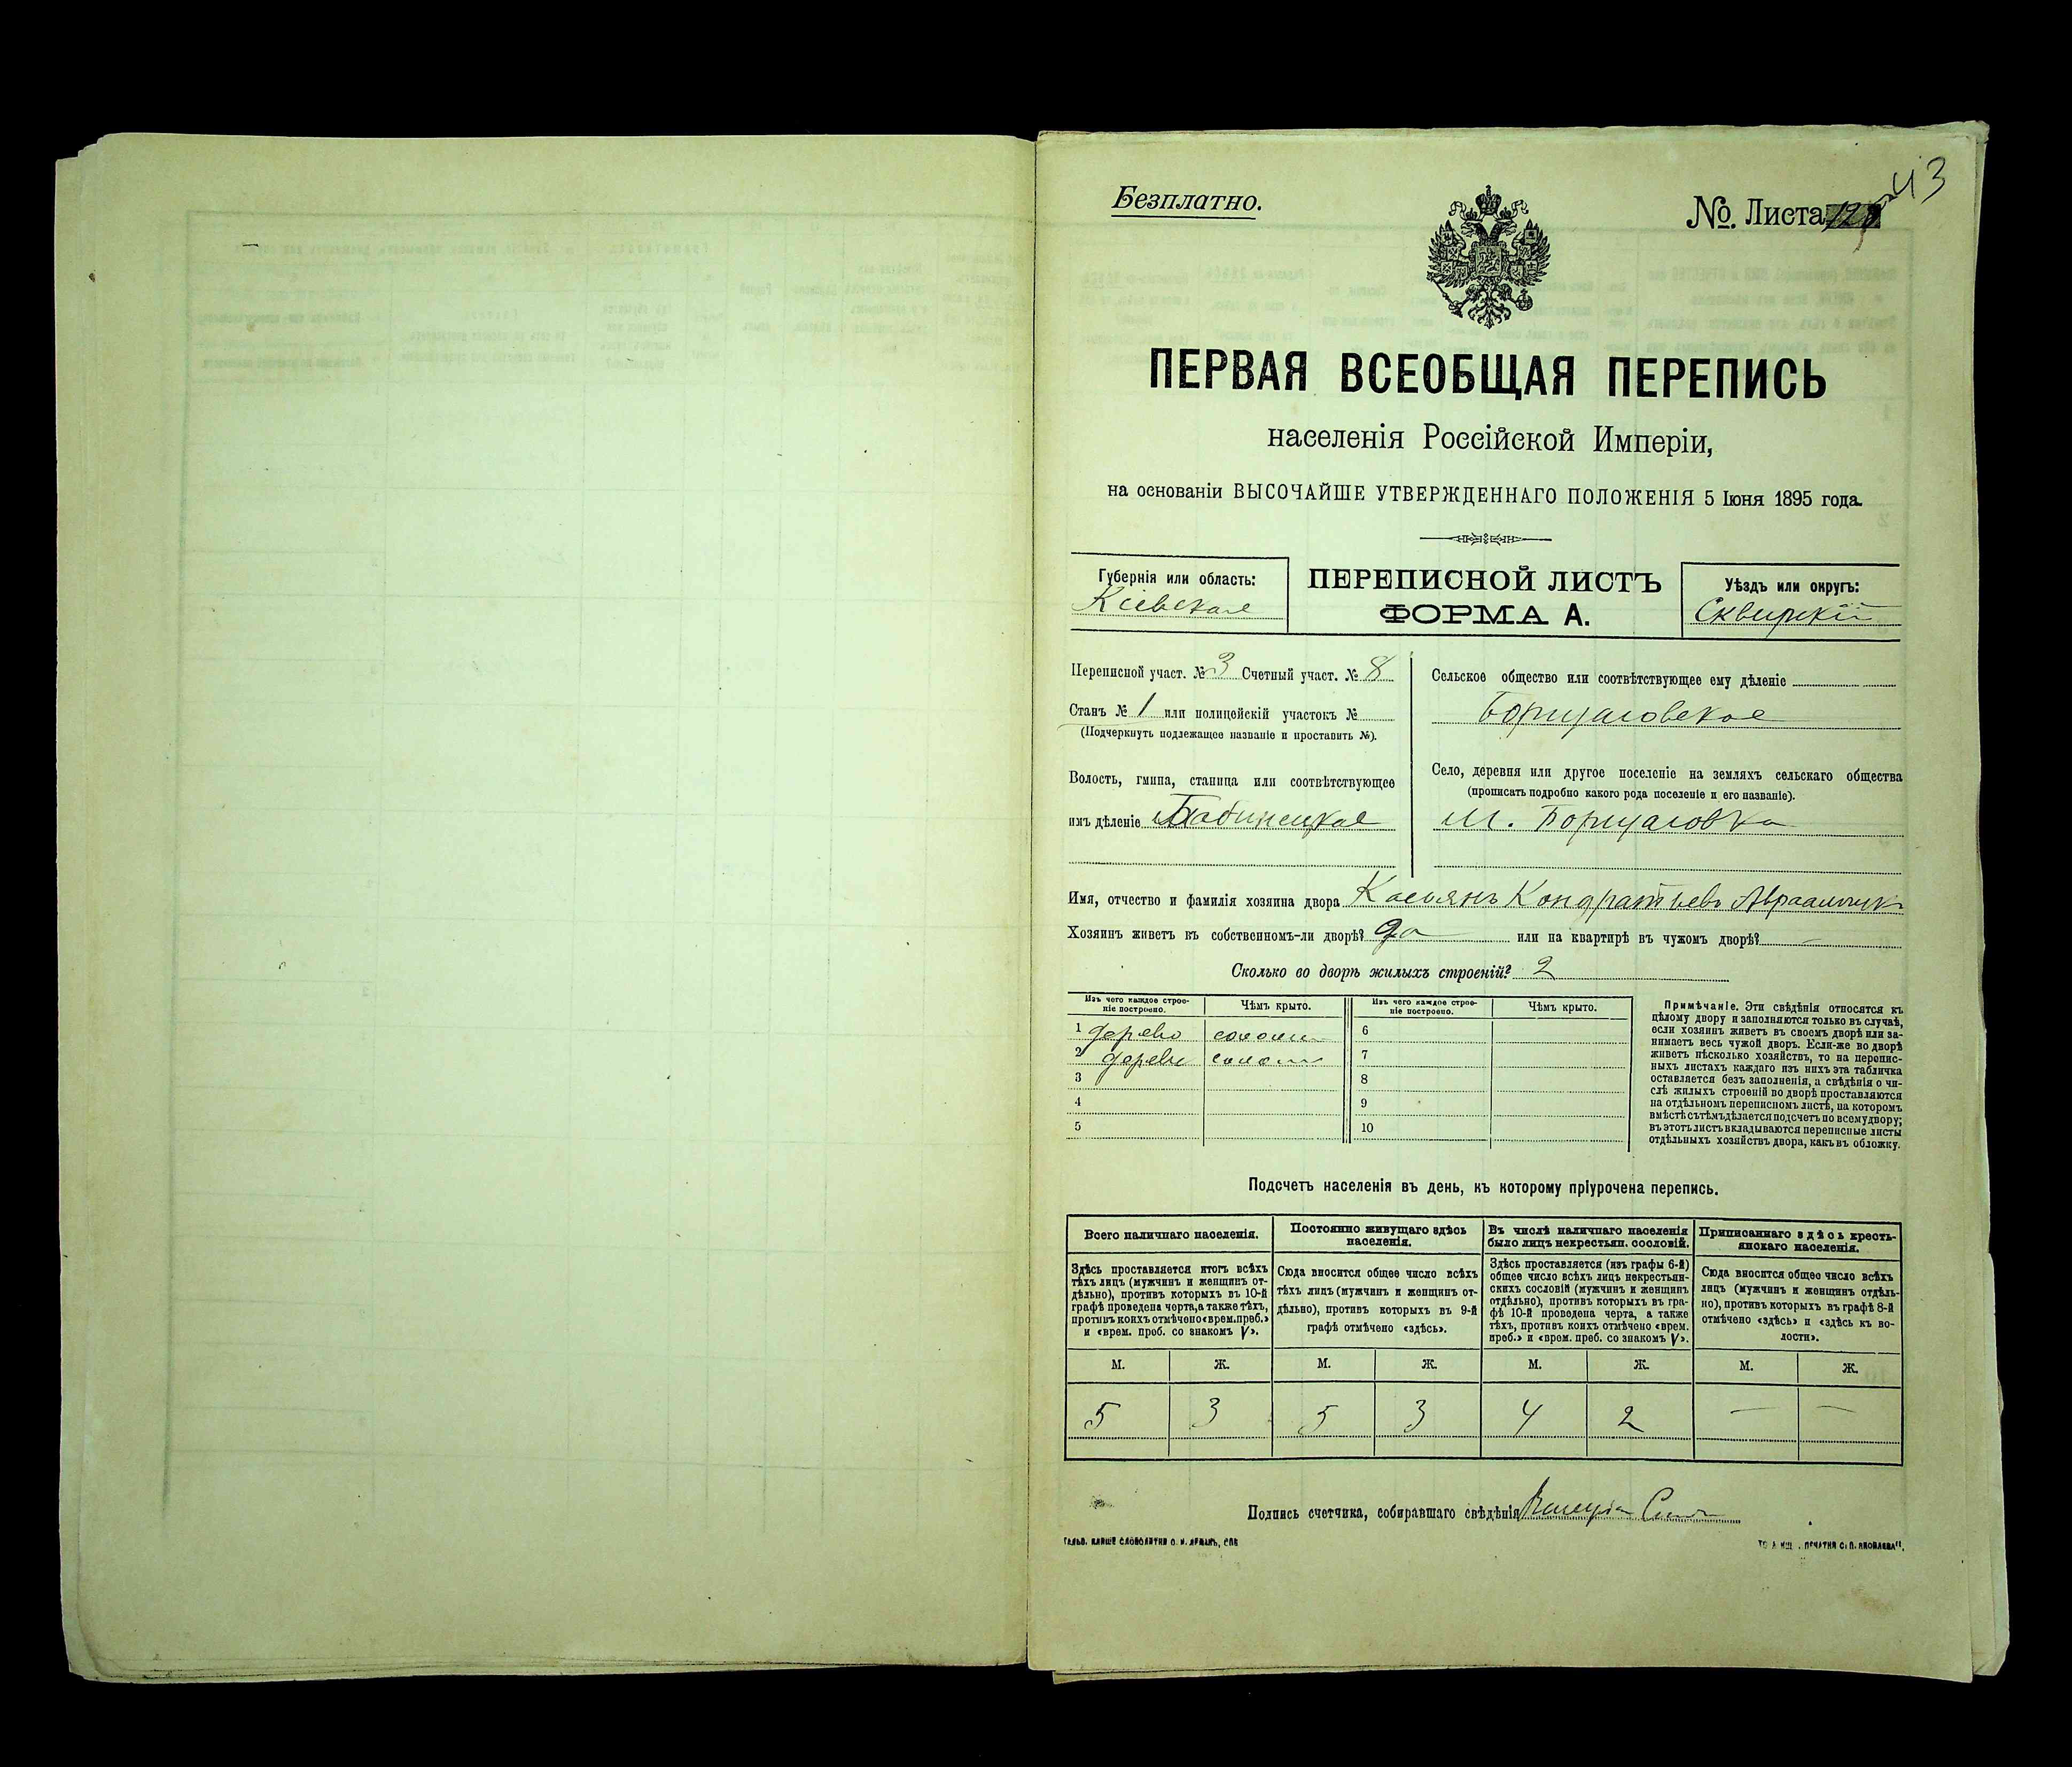 43
Безплатно.
№ Листа
ПЕРВАЯ ВСЕОБЩАЯ ПЕРЕПИСЬ
населенія Россійской Имперіи,
на основаніи ВЫСОЧАЙШЕ УТВЕРЖДЕННАГО ПОЛОЖЕНІЯ 5 Іюня 1895 года.
Губернія или область:
Кіевская
ПЕРЕПИСНОЙ ЛИСТЪ
ФОРМА А.
Уѣздъ или округъ:
Сквирскій
Переписной участ. № 3 Счетный участ. № 8
Станъ № 1 или полицейскій участокъ №
(Подчеркнуть подлежащее названіе и проставить №).
Волость, гмина, станица или соотвѣтствующее
имъ дѣленіе Бабинецкая
Сельское общество или соотвѣтствующее ему дѣленіе
Борщаговское
Село, деревня или другое поселеніе на земляхъ сельскаго общества
(прописать подробно какого рода поселеніе и его названіе).
м. Борщаговка
Имя, отчество и фамилія хозяина двора Касьянъ Кондратьевъ
Хозяинъ живетъ въ собственномъ-ли дворѣ? да или на квартирѣ въ чужомъ дворѣ? —
Сколько во дворѣ жилыхъ строеній? 2
Изъ чего каждое строе-
ніе построено.
Чѣмъ крыто.
Изъ чего каждое строе-
ніе построено.
Чѣмъ крыто.
1 дерево 6
2 7
3 8
4 9
5 10
Примѣчаніе. Эти свѣдѣнія относятся къ
цѣлому двору и заполняются только въ случаѣ,
если хозяинъ живетъ въ своемъ дворѣ или за-
нимаетъ весь чужой дворъ. Если-же во дворѣ
живетъ нѣсколько хозяйствъ, то на перепис-
ныхъ листахъ каждаго изъ нихъ эта табличка
оставляется безъ заполненія, а свѣдѣнія о чи-
слѣ жилыхъ строеній во дворѣ проставляются
на отдѣльномъ переписномъ листѣ, на которомъ
вмѣстѣ съ тѣмъ дѣлается подсчетъ по всему двору;
въ этотъ листъ вкладываются переписные листы
отдѣльныхъ хозяйствъ двора, какъ въ обложку.
Подсчетъ населенія въ день, къ которому пріурочена перепись.
Всего наличнаго населенія.
Здѣсь проставляется итогъ всѣхъ
тѣхъ лицъ (мужчинъ и женщинъ от-
дѣльно), противъ которыхъ въ 10-й
графѣ проведена черта, а также тѣхъ,
противъ коихъ отмѣчено «врем. преб.»
и «врем. проб. со знакомъ V».
Постоянно живущаго здѣсь
населенія.
Сюда вносится общее число всѣхъ
тѣхъ лицъ (мужчинъ и женщинъ от-
дѣльно), противъ которыхъ въ 9-й
графѣ отмѣчено «здѣсь».
Въ числѣ наличнаго населенія
было лицъ некрестьян. сословій.
Здѣсь проставляется (изъ графы 6-й)
общее число всѣхъ лицъ некрестьян-
скихъ сословій (мужчинъ и женщинъ
отдѣльно), противъ которыхъ въ гра-
фѣ 10-й проведена черта, а также
тѣхъ, противъ коихъ отмѣчено «врем.
преб.» и «врем. преб. со знакомъ V».
Приписаннаго здѣсь кресть-
янскаго населенія.
Сюда вносится общее число всѣхъ
лицъ (мужчинъ и женщинъ отдѣль-
но), противъ которыхъ въ графѣ 8-й
отмѣчено «здѣсь» и «здѣсь къ во-
лости».
М. Ж. М. Ж. М. Ж. М. Ж.
5 3 5 3 4 2 — —
Подпись счетчика, собиравшаго свѣдѣнія